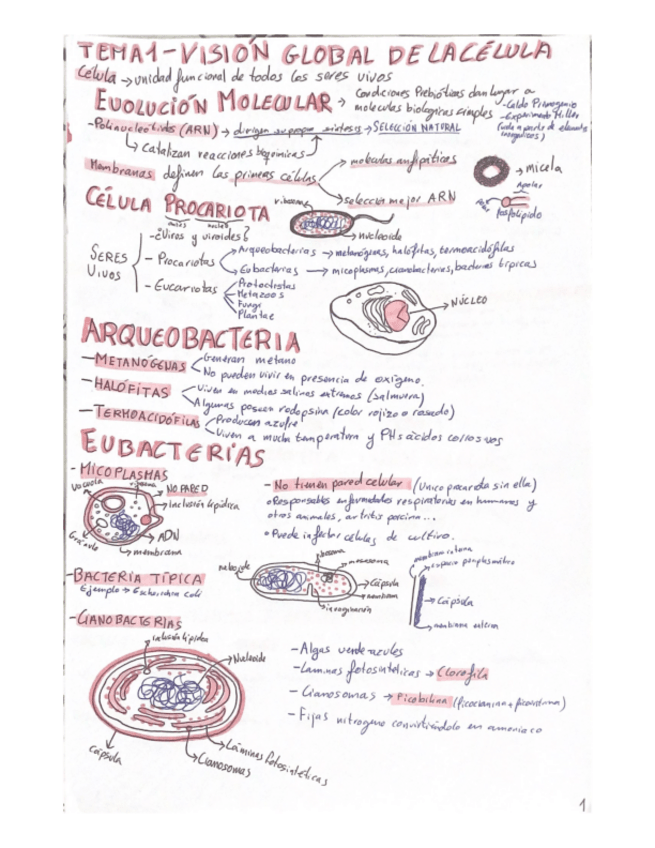 TEMA 1 - VISIÓN GLOBAL DE LA CÉLULA
Célula → unidad funcional de todos los seres vivos
EVOLUCIÓN MOLECULAR → Condiciones Prebióticas dan lugar a
moléculas biológicas simples
- Caldo Primogenio
- Experimento Miller
(vida a partir de elementos
inorgánicos)
- Polinucleótidos (ARN) → dirigen su propia síntesis → SELECCIÓN NATURAL
↳ Catalizan reacciones bioquímicas
Membranas definen las primeras células
→ moléculas anfipáticas
→ selección mejor ARN
→ micela
Apolar
Polar
fosfolípido
CÉLULA PROCARIOTA
ribosoma
nucleoide
SERES
VIVOS
- ¿Virus y viroides?
- Procariotas
→ Arqueobacterias → metanógenas, halófitas, termoacidófilas
→ Eubacterias → micoplasmas, cianobacterias, bacterias típicas
- Eucariotas
Protoctistas
Metazoos
Fungi
Plantae
NÚCLEO
ARQUEOBACTERIA
- METANÓGENAS
Generan metano
No pueden vivir en presencia de oxígeno.
- HALÓFITAS
Viven en medios salinos extremos (salmuera)
Algunas poseen rodopsina (color rojizo o rosado)
- TERMOACIDÓFILAS
Producen azufre
Viven a mucha temperatura y PHs ácidos corrosivos
EUBACTERÍAS
- MICOPLASMAS
Vacuola
ribosoma
NO PARED
inclusión lipídica
ADN
membrana
Gránulo
- No tienen pared celular (Único procariota sin ella)
• Responsables enfermedades respiratorias en humanos y
otros animales, artritis porcina...
• Puede infectar células de cultivo.
- BACTERIA TÍPICA
Ejemplo → Escherichia Coli
nucleoide
ribosoma
mesosoma
Cápsula
membrana
invaginación
membrana interna
espacio periplasmático
Cápsula
membrana externa
- CIANOBACTERIAS
inclusión lipídica
Nucleoide
Cápsula
Cianosomas
Láminas fotosintéticas
- Algas verde-azules
- Laminas fotosintéticas → Clorofila
- Cianosomas → Ficobilina (ficocianina y ficoeritrina)
- Fijas nitrogeno convirtiéndolo en amoniaco
1